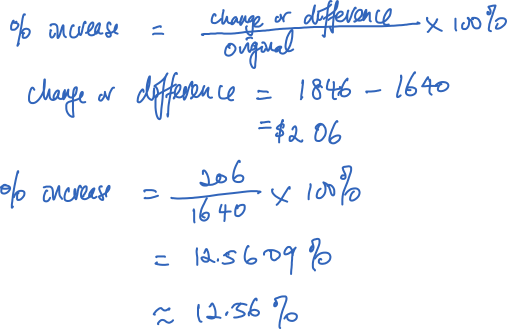 % increase = change or difference / original × 100%
change or difference = 1846 - 1640
= $206
% increase = 206 / 1640 × 100%
= 12.5609%
≈ 12.56%